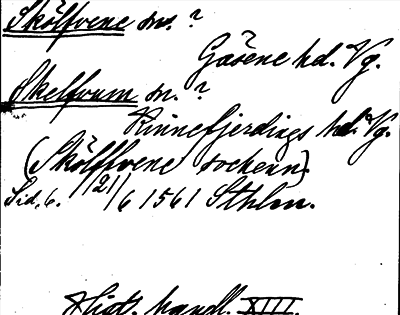 Skölfvene sn. ?
Gäsene hd. Vg.
Skelfvum sn. ?
Kinnefjerdings hd. Vg.
(Skölffvene sochenn).
Sid. 6. 21/6 1561 Sthlm.
Hist. handl. XIII.